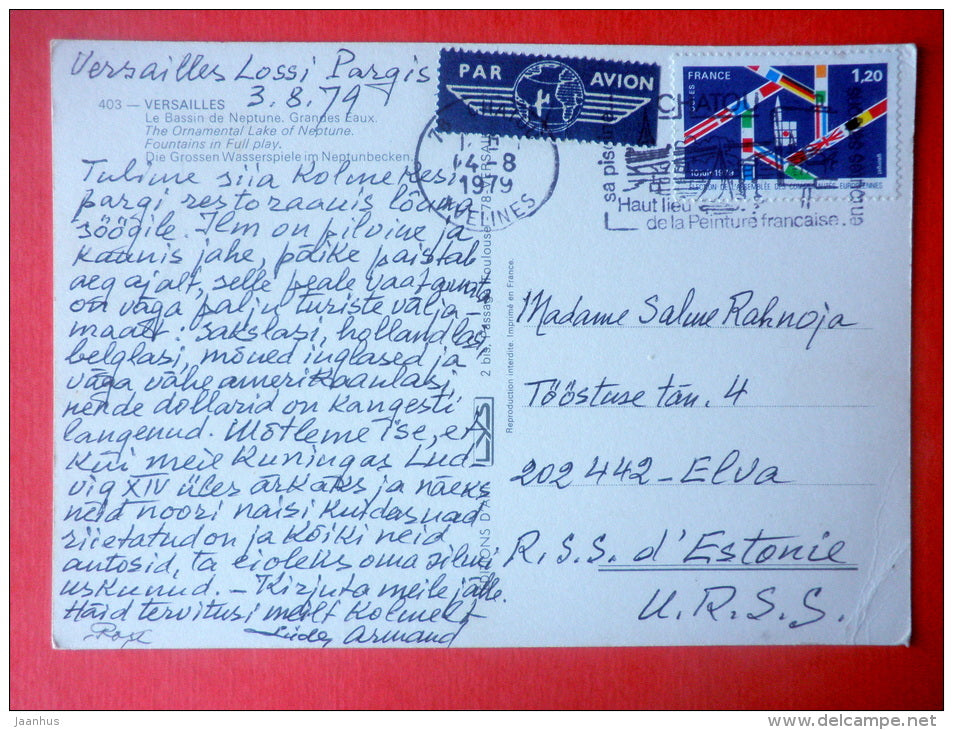 Versailles Lossi Pargis
3.8.79
403 — VERSAILLES
Le Bassin de Neptune. Grandes Eaux.
The Ornamental Lake of Neptune.
Fountains in Full play.
Die Grossen Wasserspiele im Neptunbecken.
Tulime siia kolmekesi
pargi restoraanis lõuna
söögile. Ilm on pilvine ja
kaunis jahe, päike paistab
aeg ajalt, selle peale vaatamata
on väga palju turiste välja-
maalt. Sakslasi, hollandlasi,
belglasi, mõned inglased ja
väga vähe amerikaanlasi,
nende dollarid on kangesti
langenud. Mõtleme ise, et
Küi meil Kuningas Lud-
vig XIV üles ärkaks ja näeks
neid noori naisi kuidas nad
riietatud on ja kõiki neid
autosid, ta ei oleks oma silmi
uskunud. – Kirjuta meile jälle.
Häid tervitusi meilt kolmelt
Armand
PAR AVION
FRANCE
1,20
POSTES
10 juin 1979
ÉLECTION DE L'ASSEMBLÉE DES COMMUNAUTÉS EUROPÉENNES
4-8
1979
YVELINES
78 VERSAILLES
CHATOU
sa piscine
Haut lieu
de la Peinture francaise.
ÉDITIONS D'ART
2 bis, Passage Toulouse
Reproduction interdite. Imprimé en France.
Madame Salme Rahnoja
Tööstuse tän. 4
202442 – Elva
R.S.S. d'Estonie
U.R.S.S.
Jaanhus
www.delcampe.net